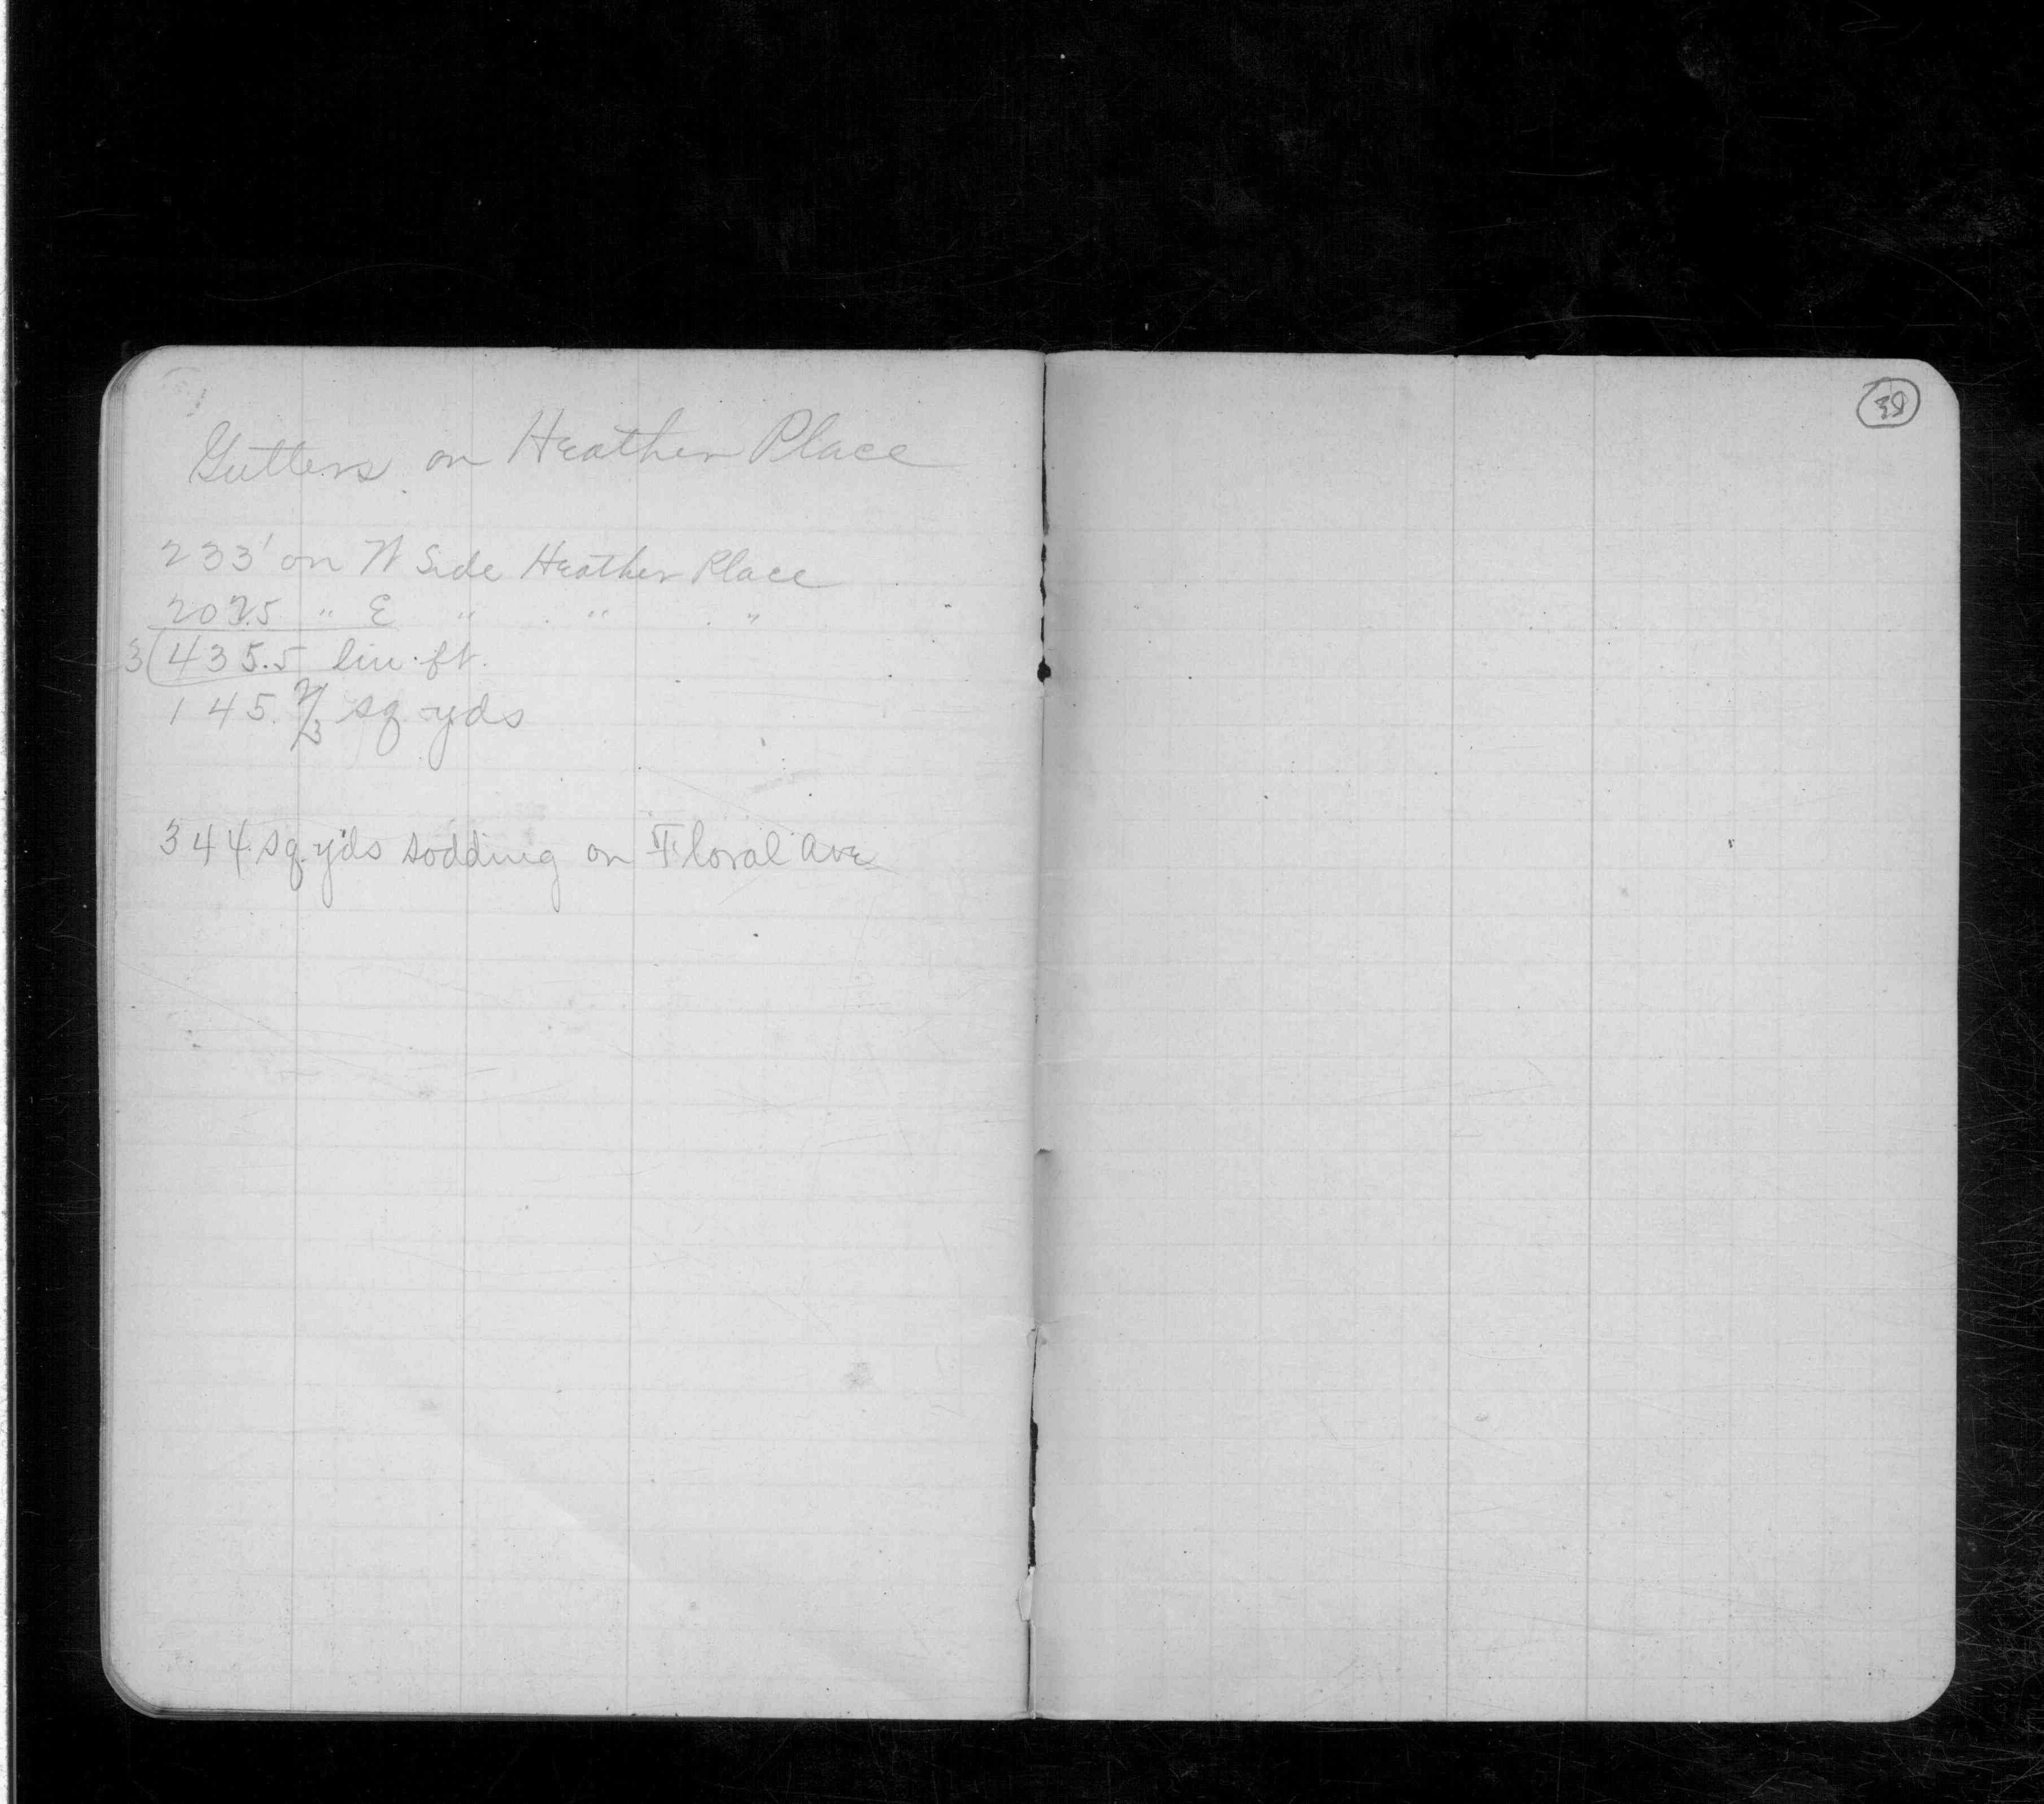 Gutters on Heather Place
233' on W Side Heather Place
202.5 " E " " "
3(435.5 lin. ft.
145. 2/3 sq. yds
344 sq. yds sodding on Floral Ave
38